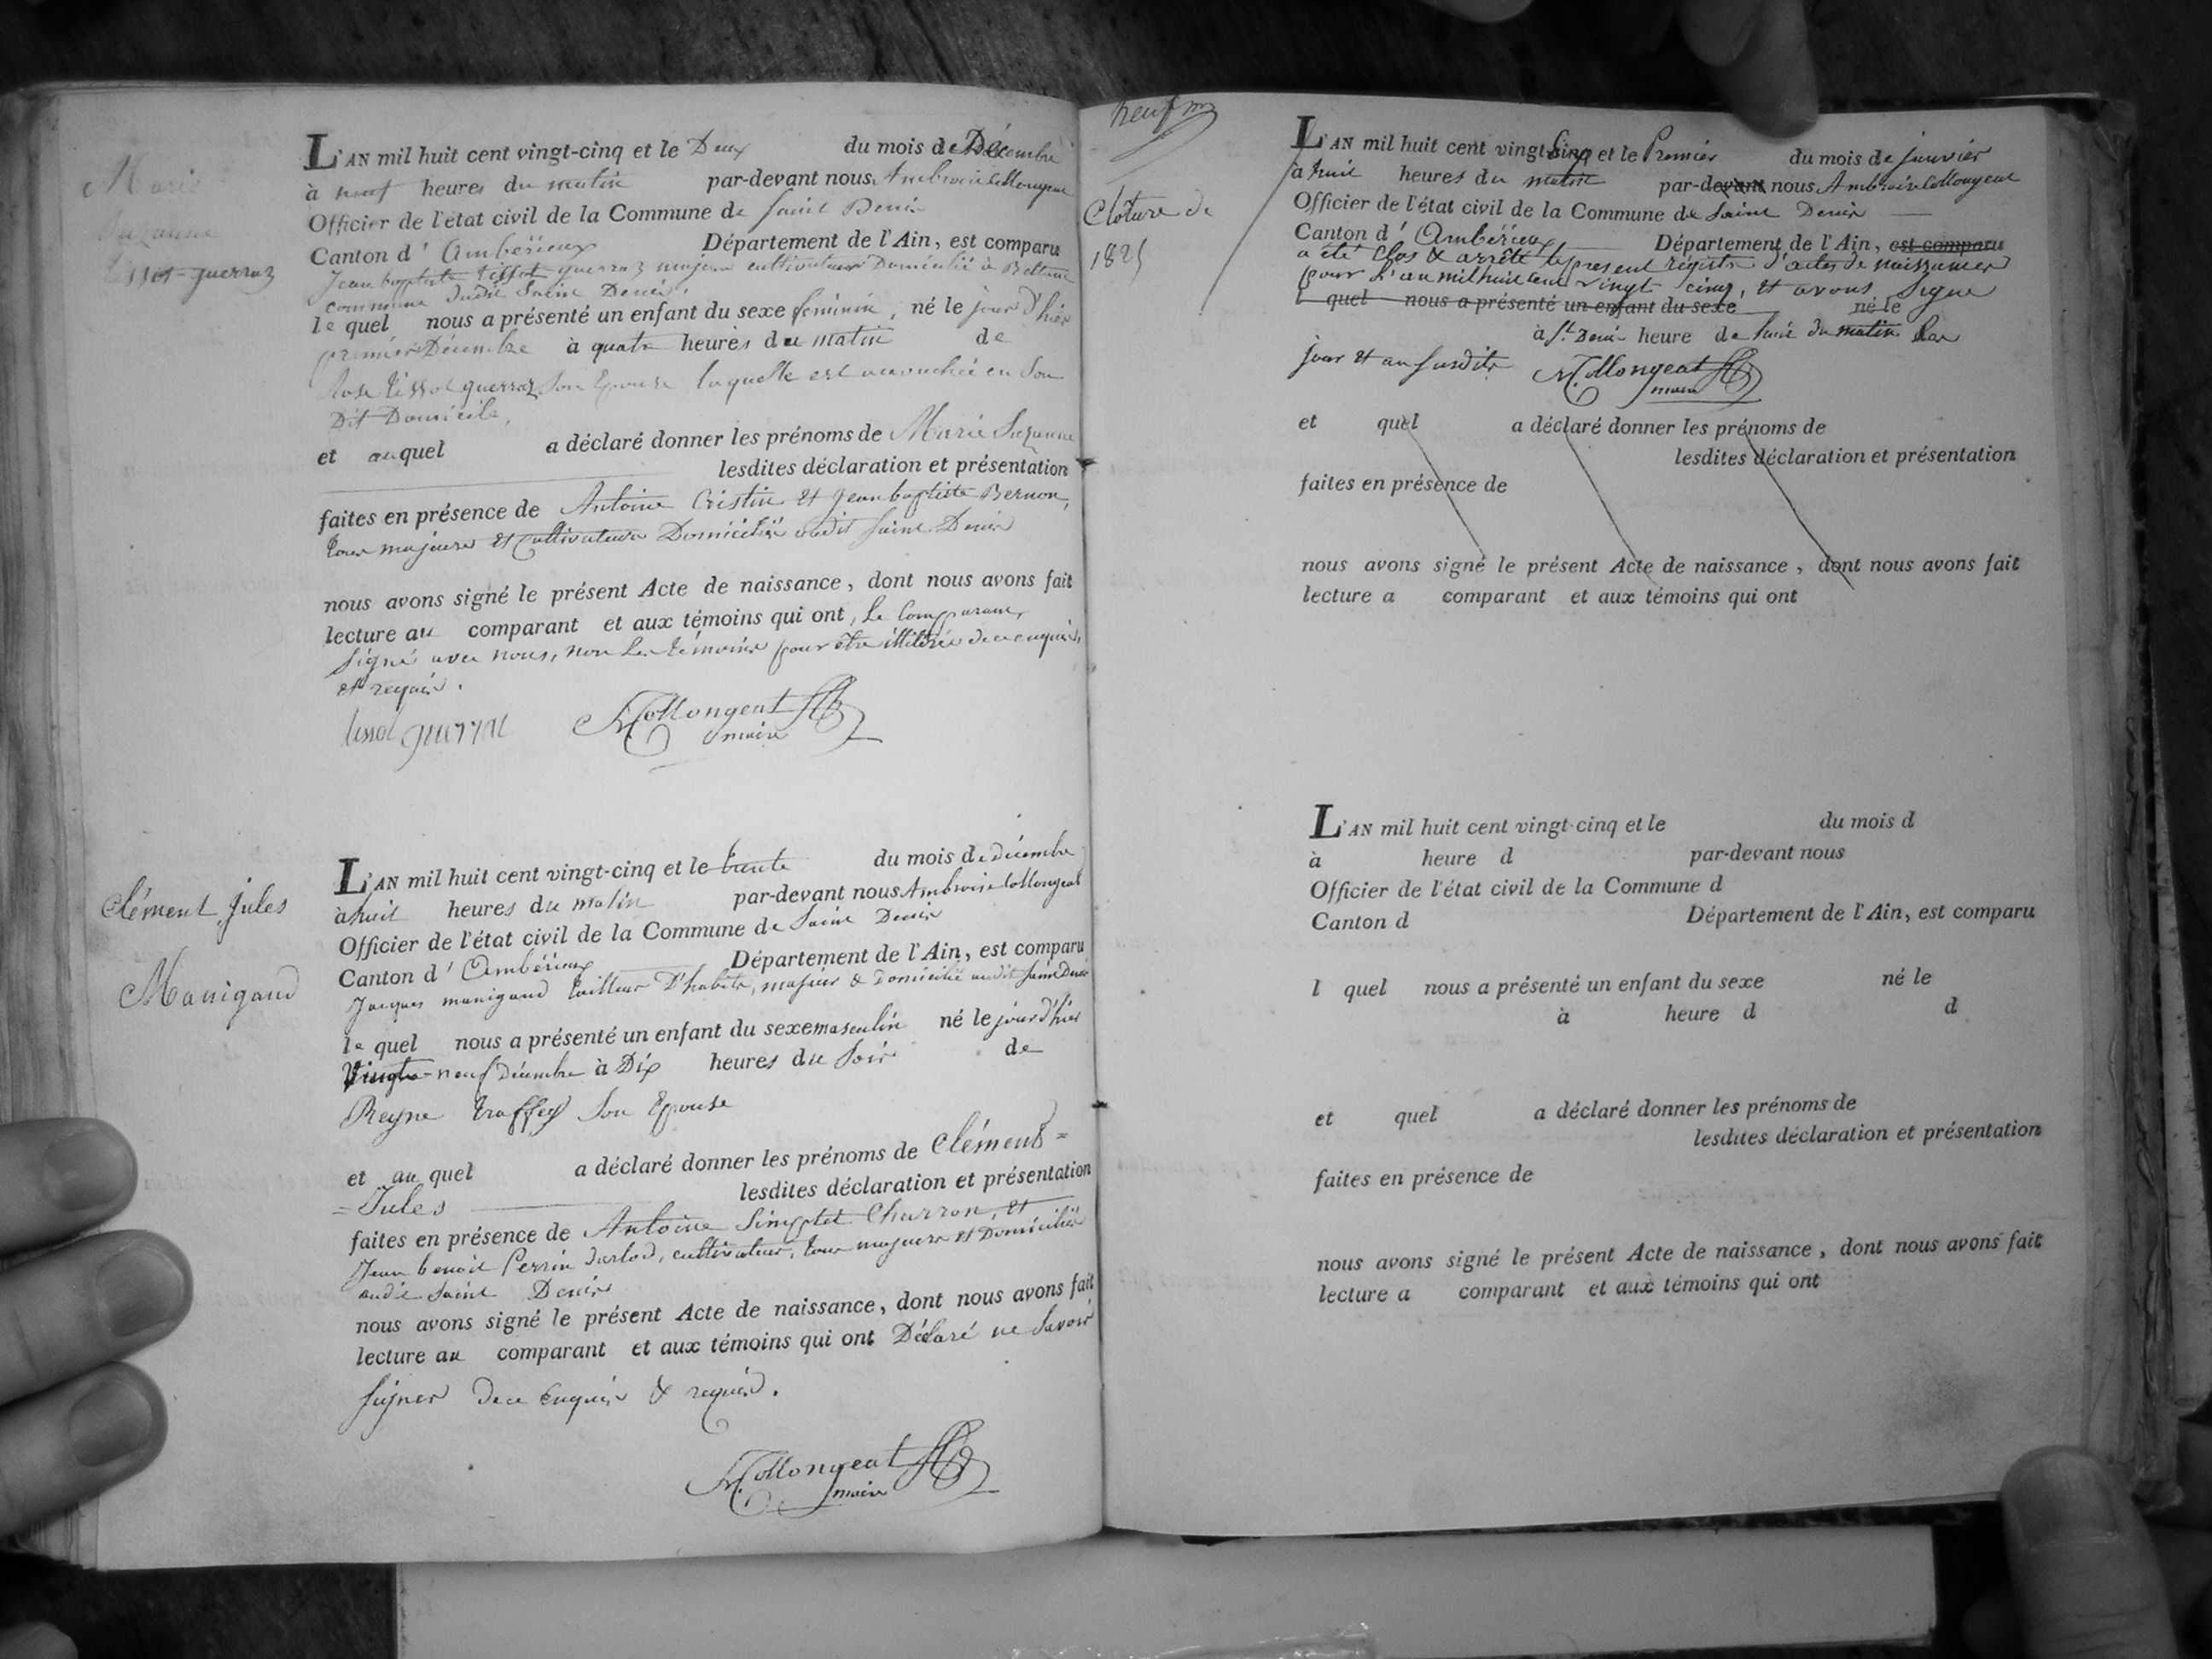 Marie
Suzanne
tissot-guerraz
L'AN mil huit cent vingt-cinq et le Deux du mois de Décembre
à neuf heures du matin par-devant nous Ambroise Collongeat
Officier de l'état civil de la Commune de Saint Denis
Canton d' Ambérieux Département de l'Ain, est comparu
Jean baptiste tissot guerraz majeur cultivateur Domicilié à
commune dudit Saint Denis,
le quel nous a présenté un enfant du sexe feminin, né le jour d'hier
premier Décembre à quatre heures du matin de
Rose tissot guerraz son Epouse laquelle est accouchée en Son
Dit Domicile,
et au quel a déclaré donner les prénoms de Marie Suzanne
lesdites déclaration et présentation
faites en présence de Antoine Cristin et Jean baptiste Bernon,
tous majeurs et Cultivateurs Domiciliés audit Saint Denis
nous avons signé le présent Acte de naissance, dont nous avons fait
lecture au comparant et aux témoins qui ont, Le Comparant,
Signé avec nous, non Les témoins pour être illitérés de ce enquis,
et requis.
tissot guerraz Collongeat
maire
Clément Jules
Manigand
L'AN mil huit cent vingt-cinq et le trente du mois de décembre
à huit heures du matin par-devant nous Ambroise Collongeat
Officier de l'état civil de la Commune de Saint Denis
Canton d' Ambérieux Département de l'Ain, est comparu
Jacques manigand tailleur D'habits, majeur & domicilié audit Saint Denis
le quel nous a présenté un enfant du sexe masculin né le jour d'hier
Vingt-neuf Décembre à Dix heures du Soir de
Reyne traffey Son Epouse
et au quel a déclaré donner les prénoms de Clément =
= Jules lesdites déclaration et présentation
faites en présence de Antoine Simplet Charron, et
Jean benoit Perrin Jarlod, cultivateur, tous majeurs et Domiciliés
audit Saint Denis
nous avons signé le présent Acte de naissance, dont nous avons fait
lecture au comparant et aux témoins qui ont Déclaré ne Savoir
Signer de ce Enquis & requis.
Collongeat
maire
neuf
Clôture de
1825
L'AN mil huit cent vingt-Six et le Premier du mois de Janvier
à huit heures du matin par-devant nous Ambroise Collongeat
Officier de l'état civil de la Commune de Saint Denis
Canton d' Ambérieux Département de l'Ain, est comparu
a été Clos & arrêté le présent régistre d'actes de naissances
pour L'an mil huit cent vingt cinq, et avons Signé
l quel nous a présenté un enfant du sexe né le
à St Denis heure de huit du matin Les
jour et an Susdits Collongeat
maire
et quel a déclaré donner les prénoms de
lesdites déclaration et présentation
faites en présence de
nous avons signé le présent Acte de naissance, dont nous avons fait
lecture a comparant et aux témoins qui ont
L'AN mil huit cent vingt-cinq et le du mois d
à heure d par-devant nous
Officier de l'état civil de la Commune d
Canton d Département de l'Ain, est comparu
l quel nous a présenté un enfant du sexe né le
à heure d d
et quel a déclaré donner les prénoms de
lesdites déclaration et présentation
faites en présence de
nous avons signé le présent Acte de naissance, dont nous avons fait
lecture a comparant et aux témoins qui ont